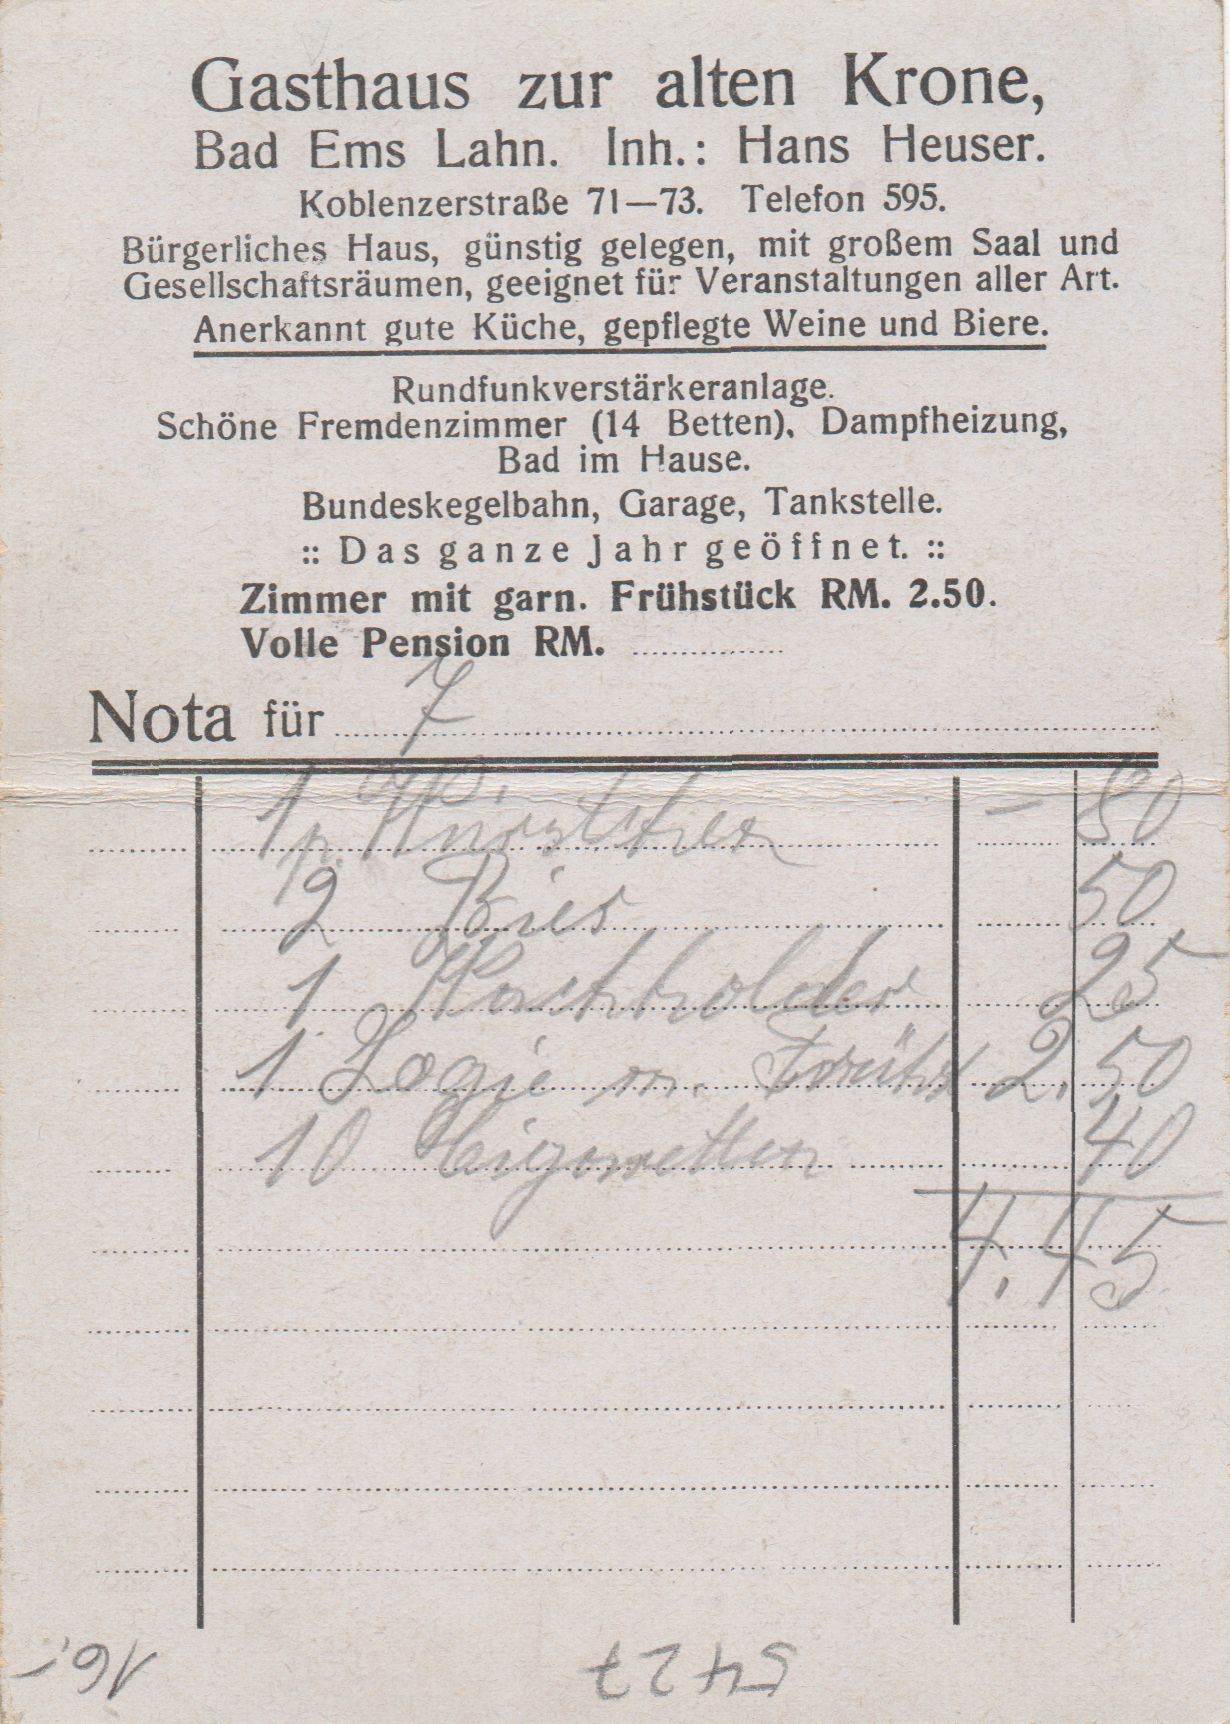 Gasthaus zur alten Krone,
Bad Ems Lahn. Inh.: Hans Heuser.
Koblenzerstraße 71—73. Telefon 595.
Bürgerliches Haus, günstig gelegen, mit großem Saal und
Gesellschaftsräumen, geeignet für Veranstaltungen aller Art.
Anerkannt gute Küche, gepflegte Weine und Biere.
Rundfunkverstärkeranlage.
Schöne Fremdenzimmer (14 Betten), Dampfheizung,
Bad im Hause.
Bundeskegelbahn, Garage, Tankstelle.
:: Das ganze Jahr geöffnet. ::
Zimmer mit garn. Frühstück RM. 2.50.
Volle Pension RM. ...............
Nota für 7
1 p. Würstchen – 80
2 Bier 50
1 Wachholder 25
1 Logie m. Frühst 2.50
10 Cigaretten 40
4.45
5427
16,-